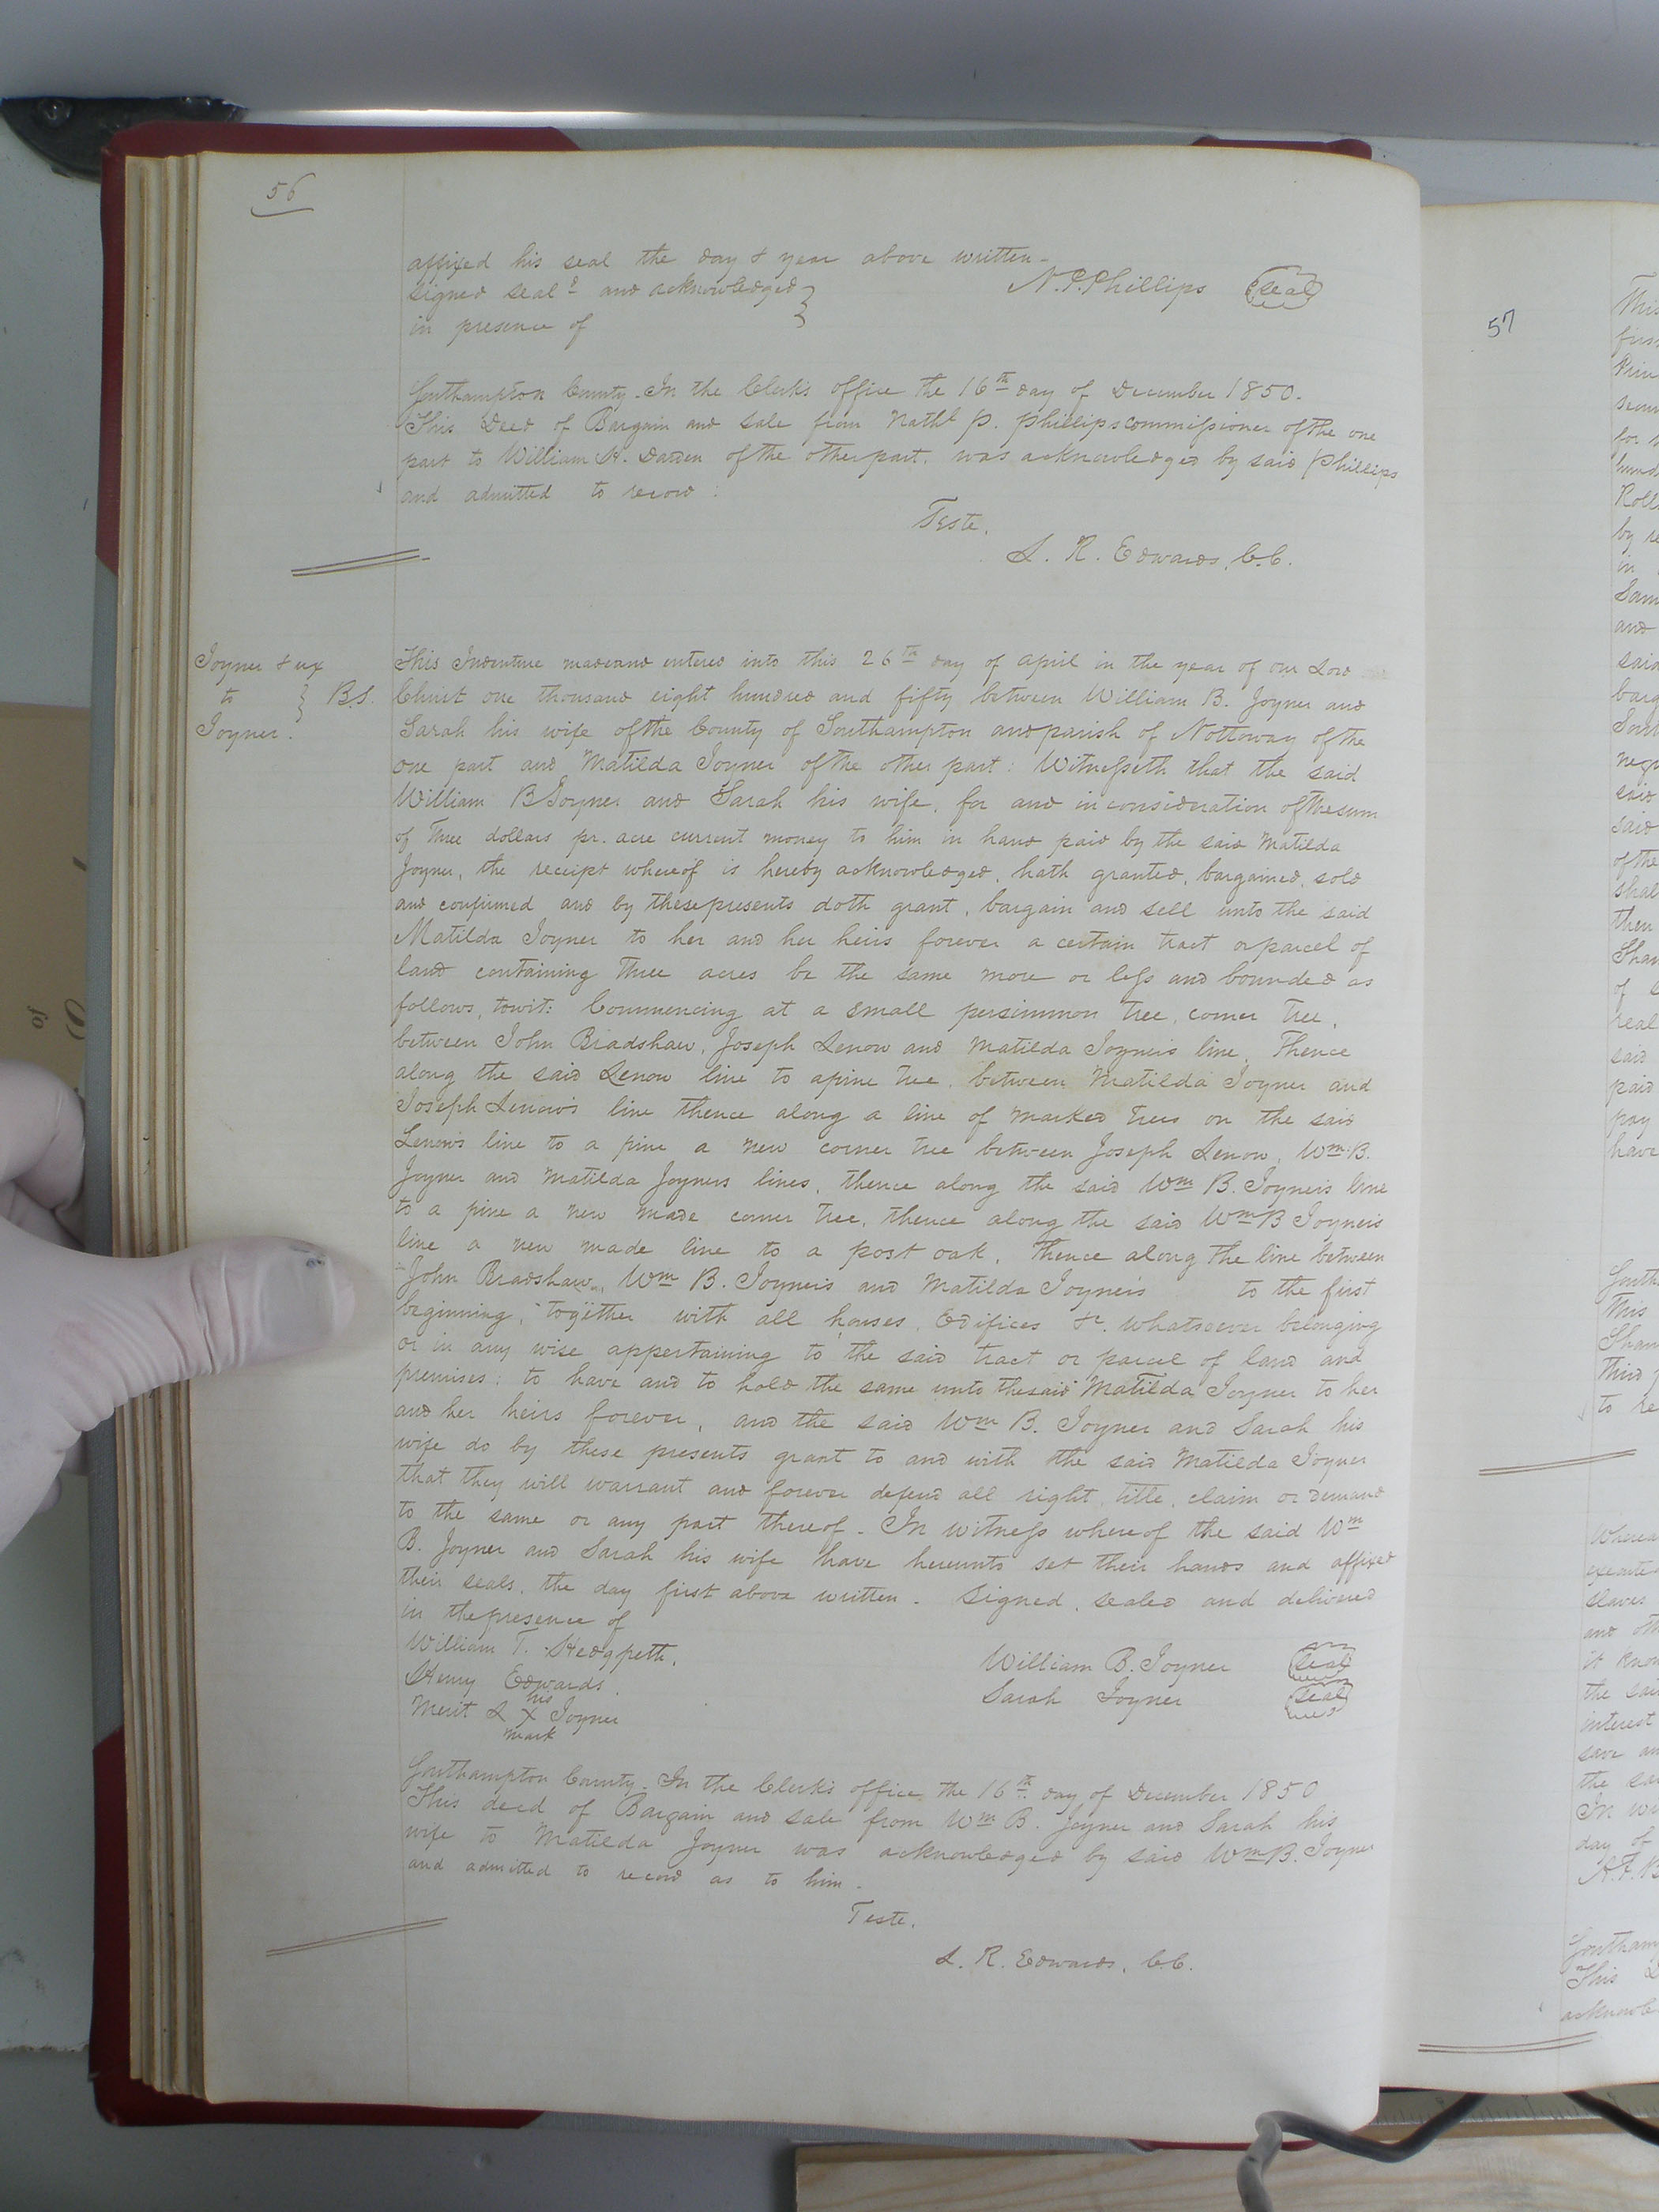 56
affixed his seal the day & year above written -
signed seald and acknowledged
in presence of
N. P. Phillips (seal)
Southampton County. In the Clerk's office the 16th day of December 1850.
This Deed of Bargain and sale from Nathl P. Phillips commissioner of the one
part to William H. Darden of the other part. was acknowledged by said Phillips
and admitted to record :
Teste.
L. R. Edwards, C.C.
Joyner & ux
to } B.S.
Joyner.
This Indenture made and entered into this 26th day of April in the year of our Lord
Christ one thousand eight hundred and fifty between William B. Joyner and
Sarah his wife of the County of Southampton and parish of Nottoway of the
one part and Matilda Joyner of the other part: Witnesseth that the said
William B Joyner and Sarah his wife, for and in consideration of the sum
of Three dollars pr. acre current money to him in hand paid by the said Matilda
Joyner, the receipt whereof is hereby acknowledged, hath granted, bargained, sold
and confirmed and by these presents doth grant, bargain and sell unto the said
Matilda Joyner to her and her heirs forever a certain tract or parcel of
land containing three acres be the same more or less and bounded as
follows, towit: Commencing at a small persimmon tree, corner tree,
between John Bradshaw, Joseph Lenow and Matilda Joyner's line, Thence
along the said Lenow line to a pine tree, between Matilda Joyner and
Joseph Lenow's line thence along a line of marked trees on the said
Lenow's line to a pine a new corner tree between Joseph Lenow, Wm. B.
Joyner and Matilda Joyners lines, thence along the said Wm B. Joyner's line
to a pine a new made corner tree, thence along the said Wm B Joyner's
line a new made line to a post oak, thence along the line between
John Bradshaw, Wm B. Joyner's and Matilda Joyner's to the first
beginning, together with all houses, Edifices &c. whatsoever belonging
or in any wise appertaining to the said tract or parcel of land and
premises: to have and to hold the same unto the said Matilda Joyner to her
and her heirs forever, and the said Wm B. Joyner and Sarah his
wife do by these presents grant to and with the said Matilda Joyner
that they will warrant and forever defend all right, title, claim or demand
to the same or any part thereof. In witness whereof the said Wm
B. Joyner and Sarah his wife have hereunto set their hands and affixed
their seals, the day first above written. Signed, sealed and delivered
in the presence of
William T. Hedgpeth,
Henry Edwards.
his
Merit L X Joyner
mark
William B. Joyner (seal)
Sarah Joyner (seal)
Southampton County. In the Clerk's office, the 16th day of December 1850
This deed of Bargain and sale from Wm B. Joyner and Sarah his
wife to Matilda Joyner was acknowledged by said Wm B. Joyner
and admitted to record as to him.
Teste.
L. R. Edwards, C.C.
57